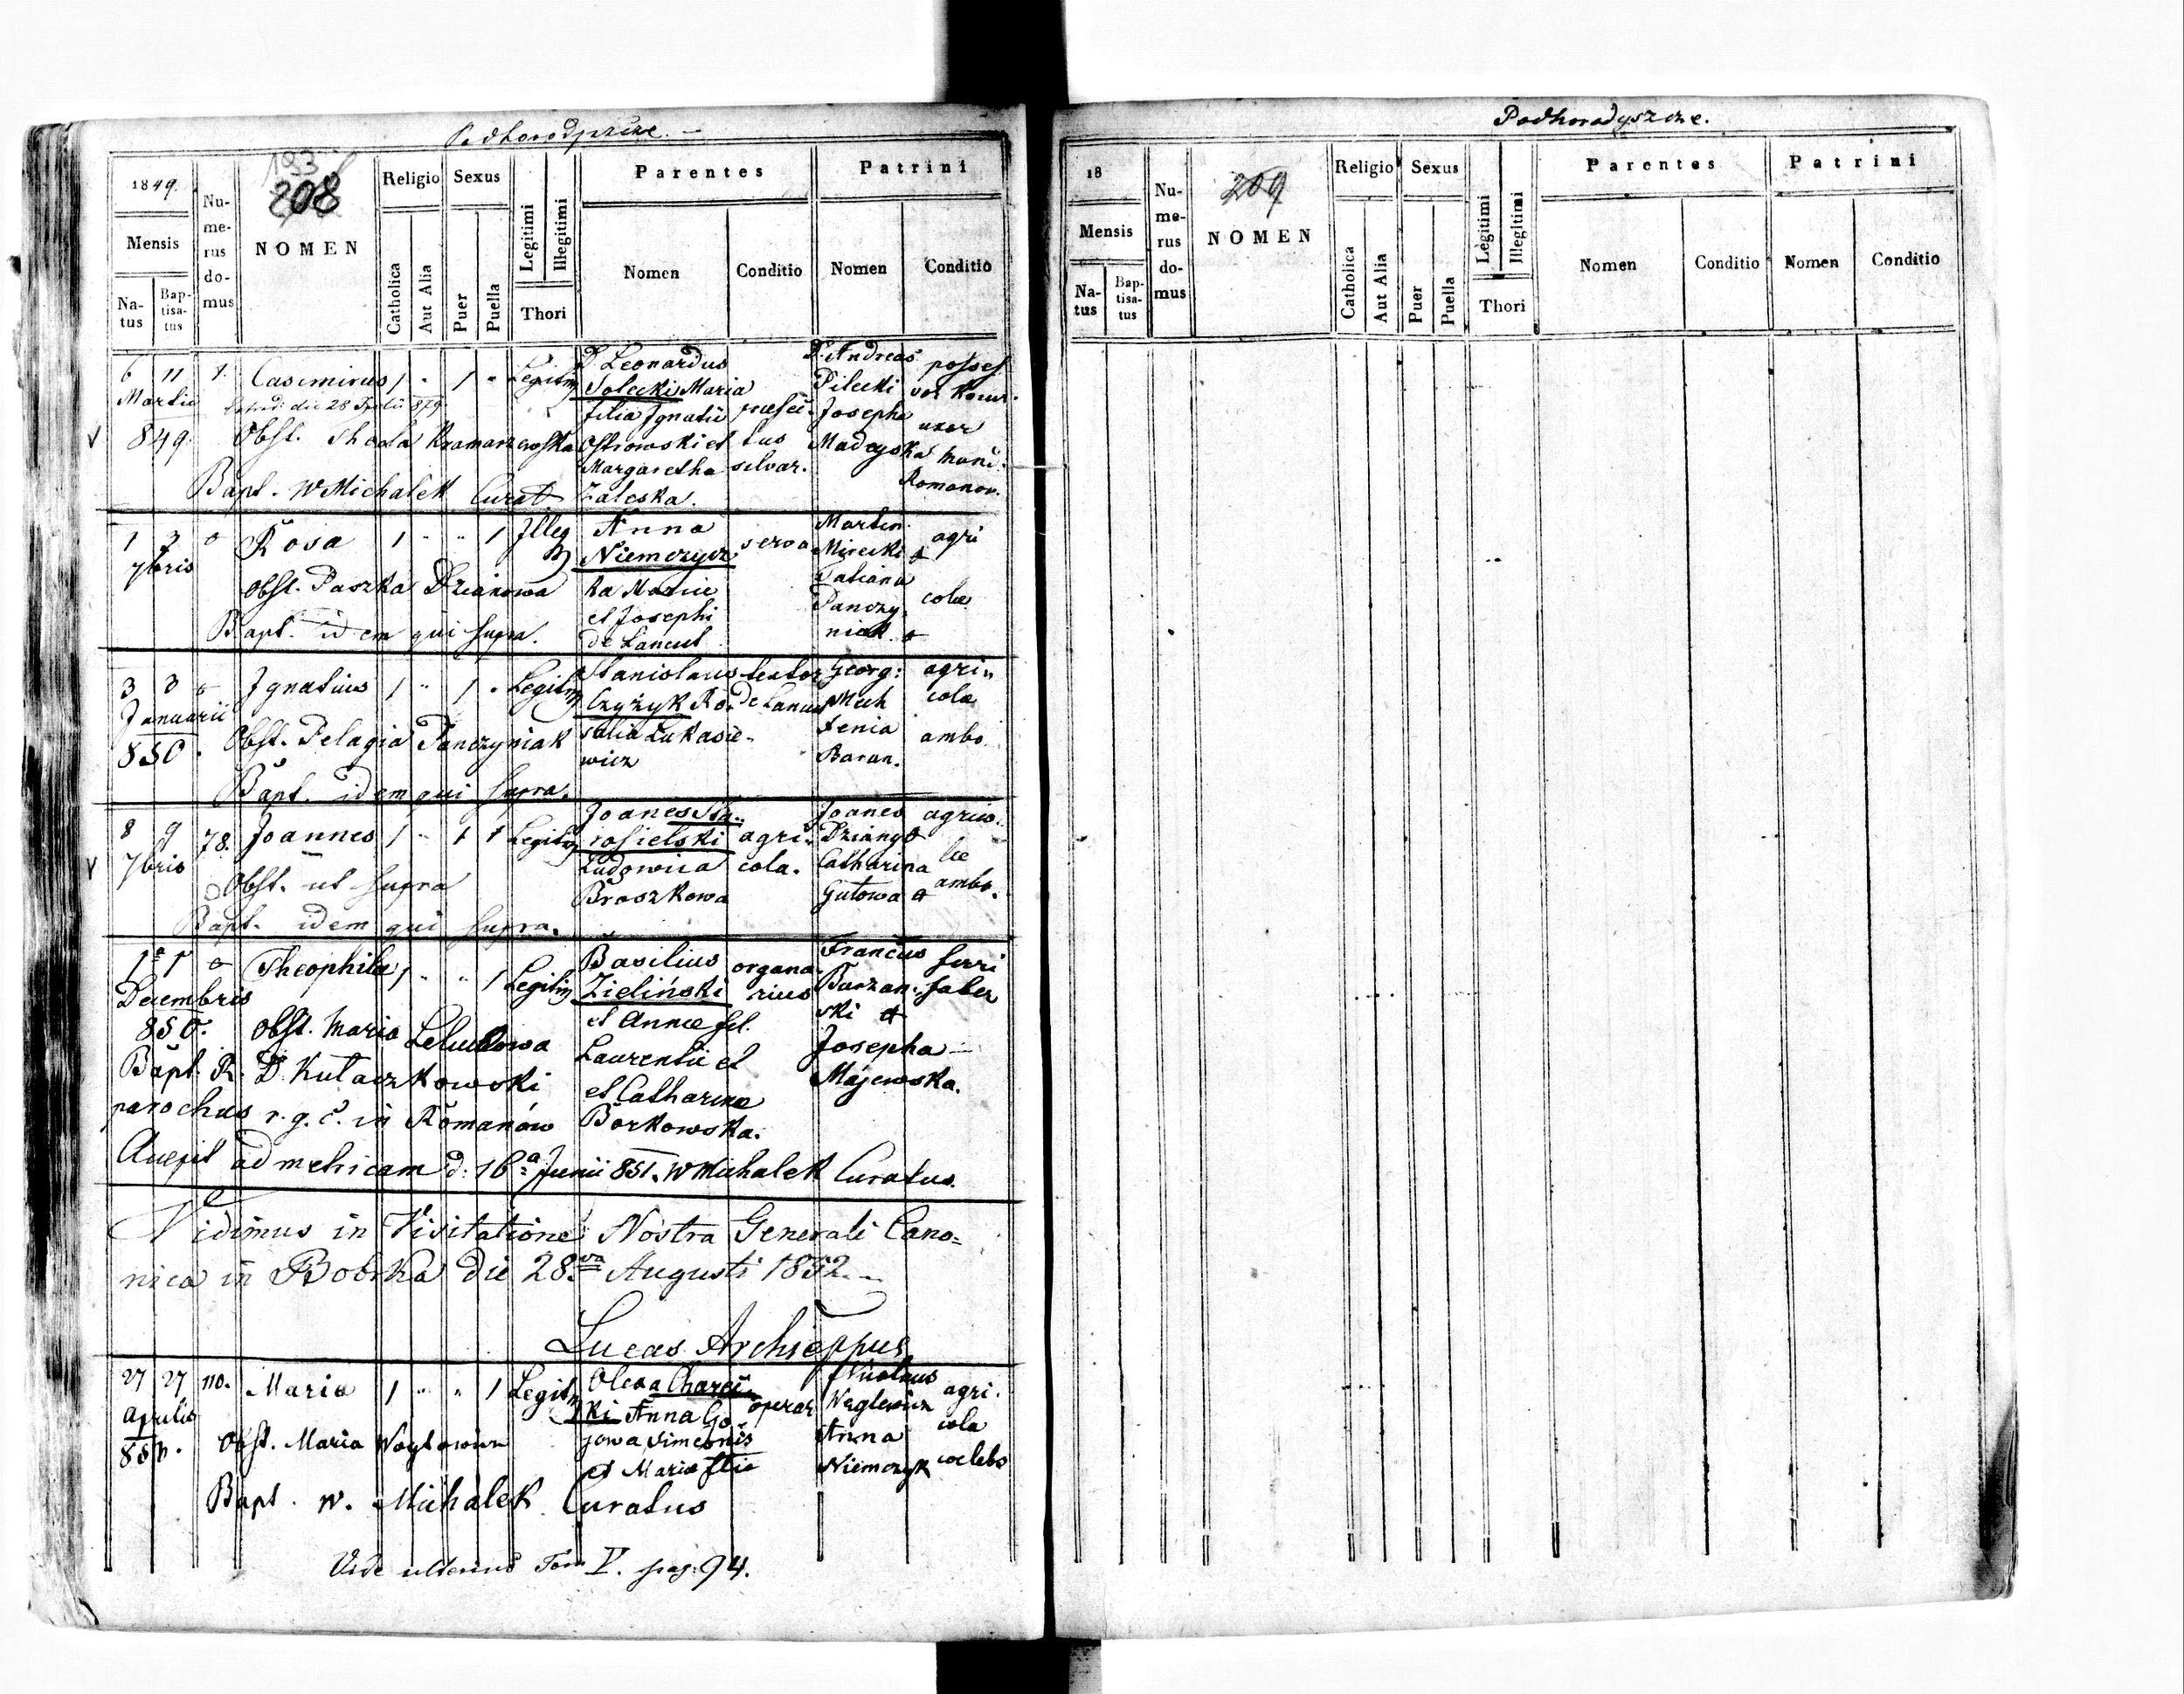 Podhorodyszcze.
1849.
193
208
Mensis
Na-
tus
Bap-
tisa-
tus
Nu-
me-
rus
do-
mus
NOMEN
Religio
Catholica
Aut Alia
Sexus
Puer
Puella
Legitimi
Illegitimi
Thori
Parentes
Nomen
Conditio
Patrini
Nomen
Conditio
6 11 1. Casimirus 1 " 1 " Legitim
Martii
849.
Obst. Thecla Kramarzewska
Bapt. W Michalek Curat
D. Leonardus
Solecki Maria
filia Ignatii
Ostrowski et
Margaretha
Zaleska.
praefec-
tus
silvar.
D. Andreas
Pilecki
Josepha
Madeyska
posses
sor
uxor
mand.
Romanov.
1 3 0 Rosa 1 " " 1 Illeg
7bris
Obst. Paszka Dzianowa
Bapt. idem qui supra.
Anna
Niemczyc
ka Mariae
et Josephi
de Lancut
serva
Martin
Mirecki &
Tatiana
Panczy
niak
agri
colae
3 3 0 Ignatius 1 " 1 " Legitim
Januarii
850.
Obst. Pelagia Panczyniak
Bapt. idem qui supra.
Stanislaus
Czyżyk Ro-
salia Łukasie-
wicz
textor
de Lancut
Georg:
Mech
Xenia
Baran.
agri-
colae
ambo.
8 9 78. Joannes 1 " 1 1 Legitim
7bris
Obst. ut supra
Bapt. idem qui supra.
Joanes Sta-
rosielski
Ludowica
Broszkowa
agri-
cola.
Joanes
Dziany &
Catharina
Gutowa
agrico-
lae
ambo.
1 1 0 Theophila 1 " " 1 Legitim
Decembris
850.
Obst. Maria Leluchowa
Bapt. R. D. Kutaczkowski
parochus r. g. c. in Romanów
Basilius
Zieliński
et Annae fil.
Laurentii et
et Catharinae
Borkowska.
organa-
rius
Francus
Burzan-
ski &
Josepha
Majewska.
ferri
faber
Accepit ad metricam d. 16a Junii 851. W Michalek Curatus.
Vidimus in Visitatione Nostra Generali Cano-
nica in Bobrka die 28va Augusti 1852.
Lucas Archieppus
27 27 110. Maria 1 " " 1 Legitim
Aprilis
Obst. Maria Woytowicz
Bapt. W. Michalek Curatus
Olexa Charci-
ki Anna Go-
jowa Simeonis
et Mariae filia
operar
Nicolaus
Węglewicz
Anna
Niemczyk
agri-
cola
coelebs
Vide ulterius Tom V. pag. 94.
Podhorodyszcze.
18
209
Mensis
Na-
tus
Bap-
tisa-
tus
Nu-
me-
rus
do-
mus
NOMEN
Religio
Catholica
Aut Alia
Sexus
Puer
Puella
Legitimi
Illegitimi
Thori
Parentes
Nomen
Conditio
Patrini
Nomen
Conditio